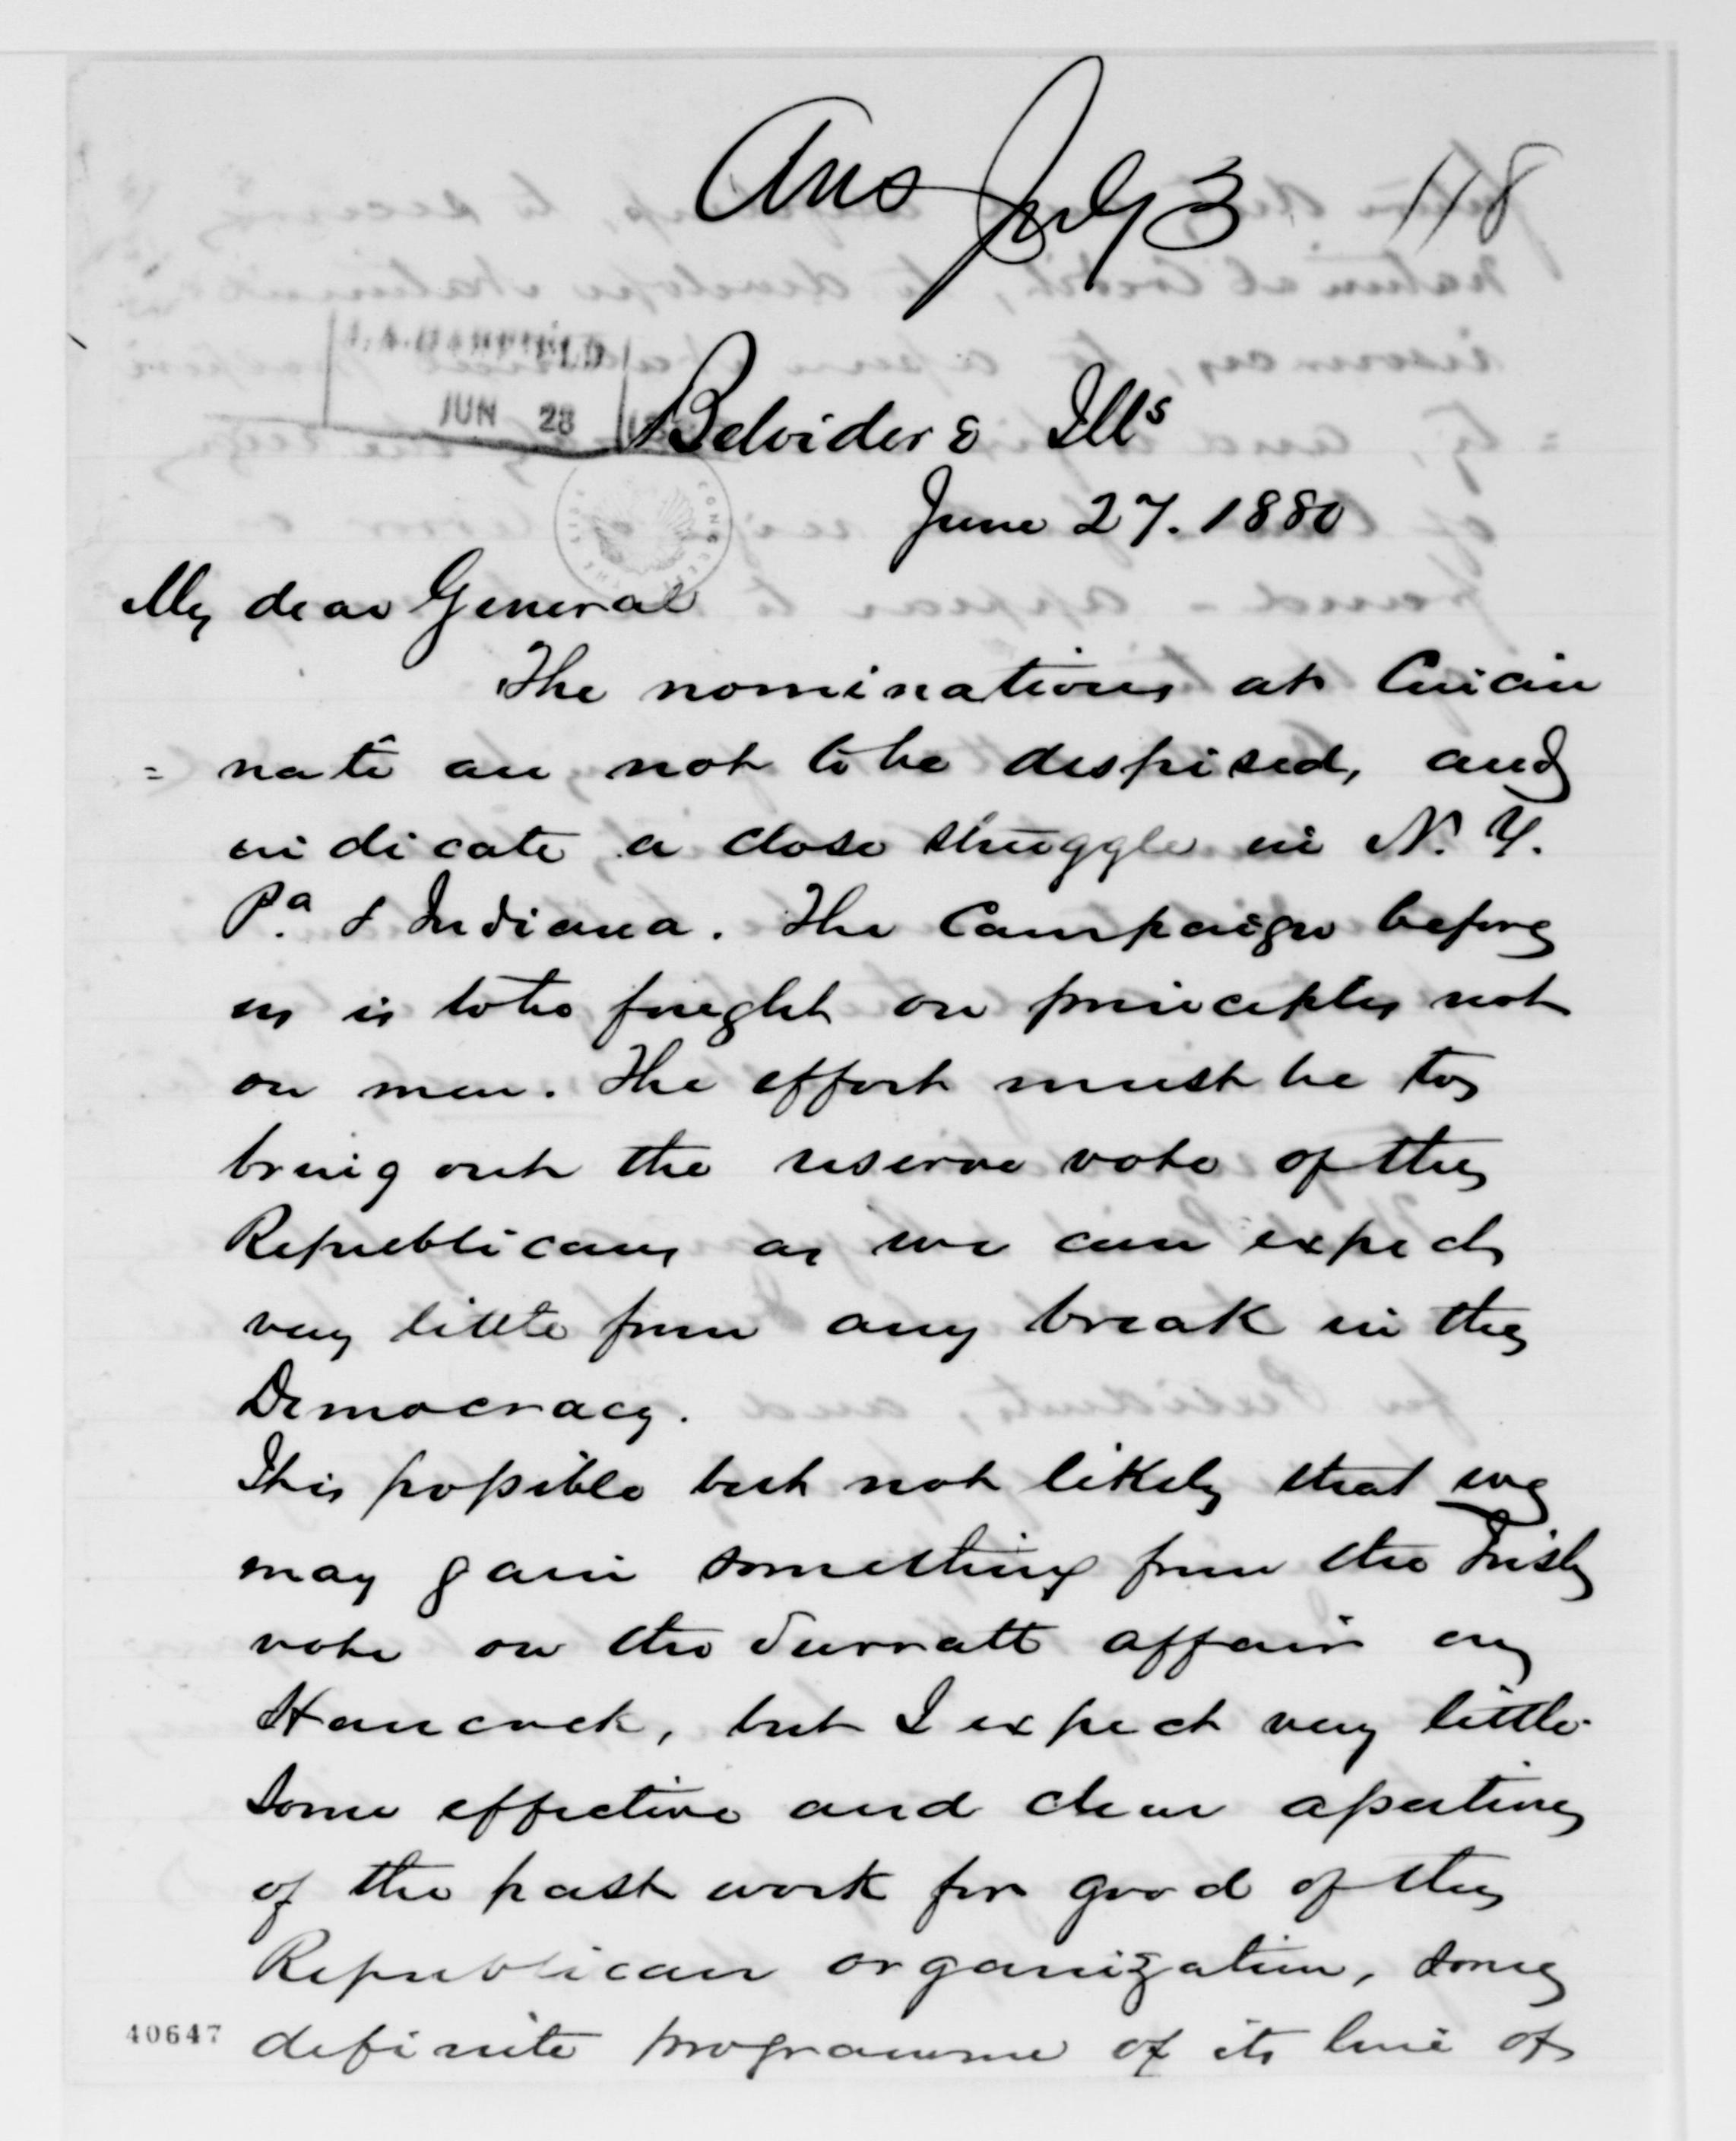 Ans July 3 118
J. A. GARFIELD
JUN 28
Belvidere Ills
June 27. 1880
My dear General
The nominations at Cincin
= nati are not to be despised, and
indicate a close struggle in N. Y.
Pa. & Indiana. The Campaign before
us is to be fought on principles not
on men. The effort must be to
bring out the reserve vote of the
Republicans as we can expect
very little from any break in the
Democracy.
It is possible but not likely that we
may gain something from the Irish
vote on the Surratt affair on
Hancock, but I expect very little.
Some effective and clear
of the past work for good of the
Republican organization, some
definite programme of its line of
40647